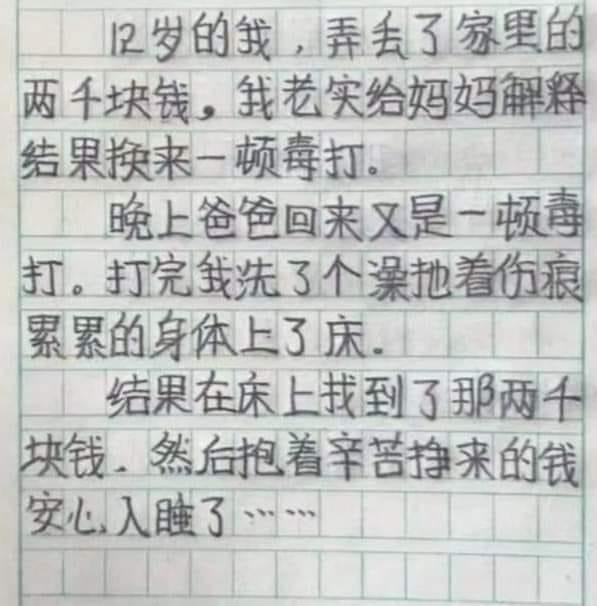 12岁的我，弄丢了家里的
两千块钱。我老实给妈妈解释
结果换来一顿毒打。
晚上爸爸回来又是一顿毒
打。打完我洗了个澡扡着伤痕
累累的身体上了床.
结果在床上找到了那两千
块钱.然后抱着辛苦挣来的钱
安心入睡了……